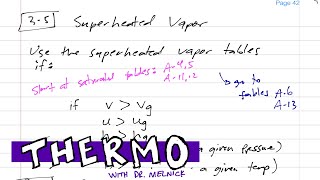 Page 42
3-5 Superheated Vapor
Use the superheated vapor tables
if:
start at saturated tables: A-4,5
A-11,12
→ go to
tables A-6
A-13
if v > vg
u > ug
h > hg
a given pressure)
a given temp)
THERMO
WITH DR. MELNICK